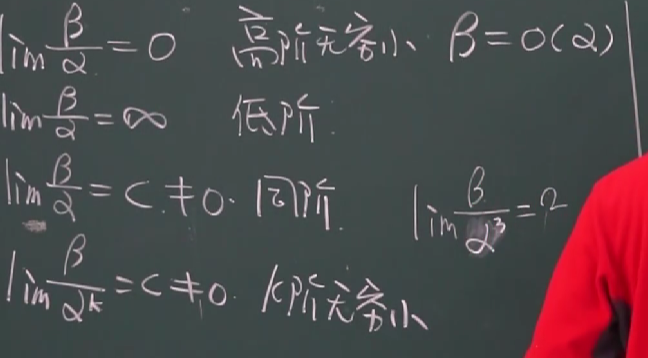 lim β/α = 0 高阶无穷小 β = o(α)
lim β/α = ∞ 低阶
lim β/α = C ≠ 0. 同阶.
lim β/α³ = 2
lim β/αᵏ = C ≠ 0. k阶无穷小